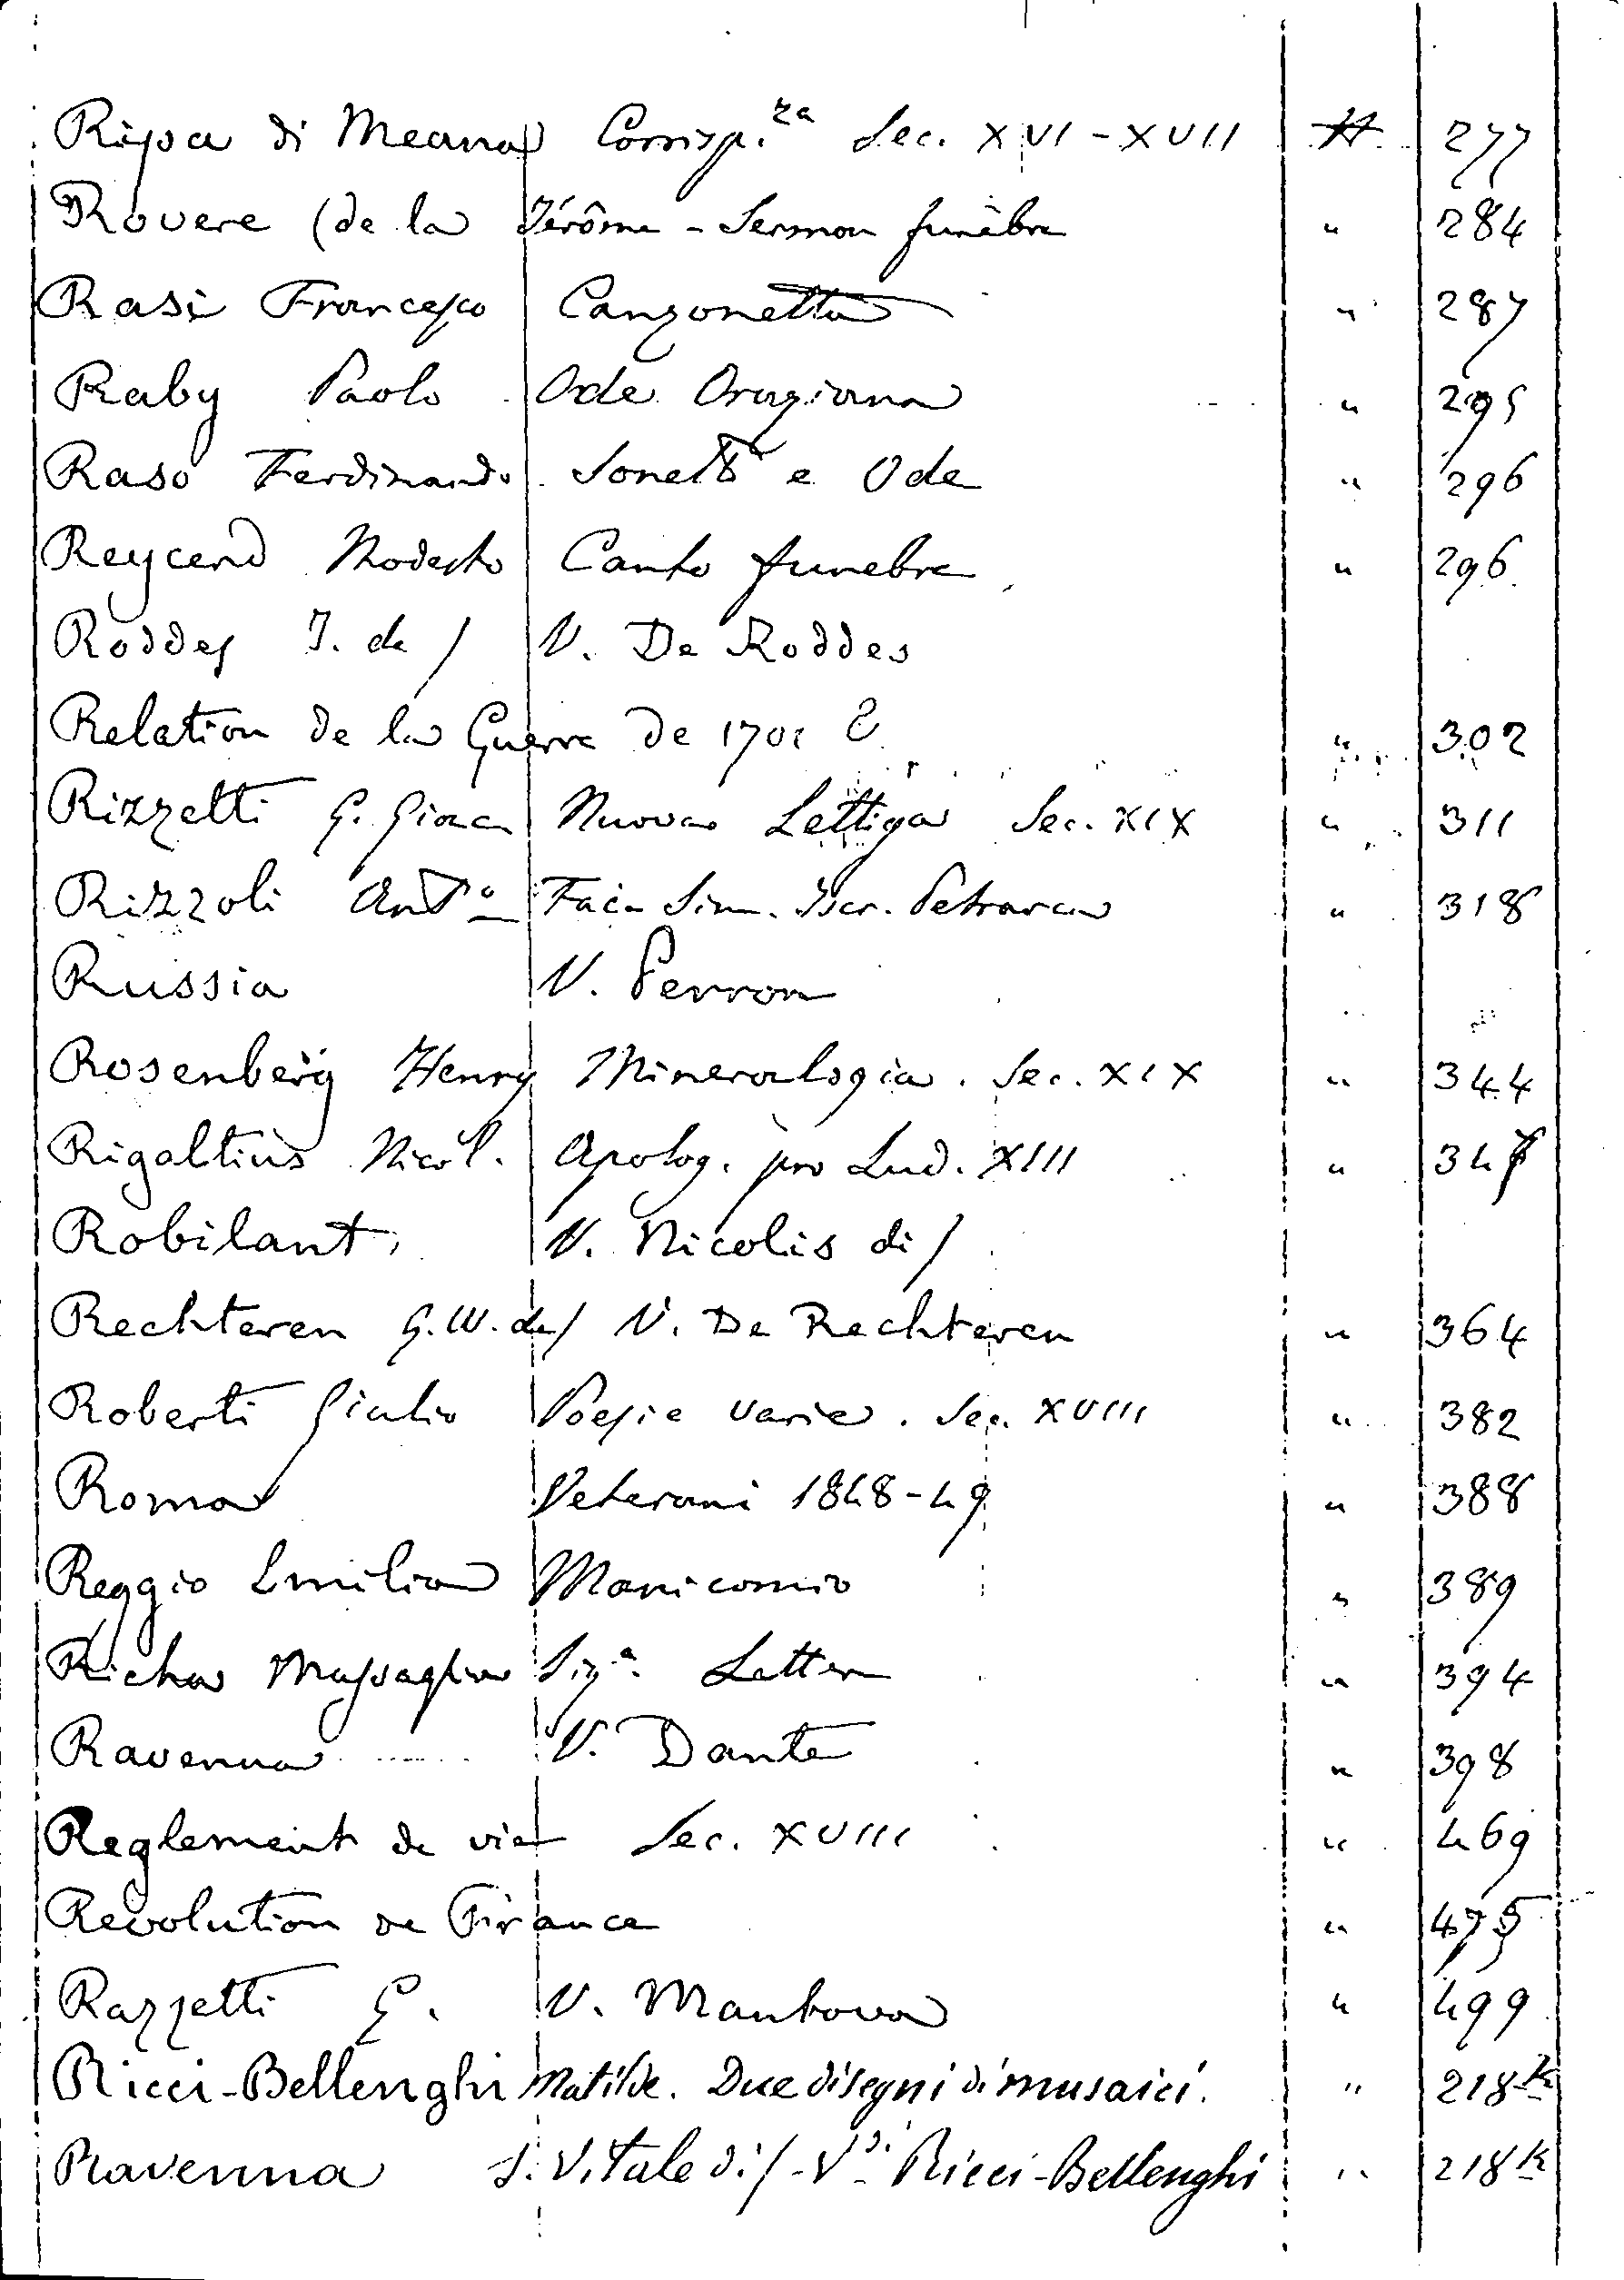 Ripa di Meana Corrisp.za Sec. XVI - XVII H 277
Rovere (de la Jérôme - Sermon funèbre " 284
Rasi Francesco Canzonetta " 287
Raby Paolo Ode Oraziana " 295
Raso Ferdinando Sonetto e Ode " 296
Reycend Modesto Canto funebre " 296
Roddes J. de / V. De Roddes
Relation de la Guerre de 1701 " 302
Rizzetti G. Giac. Nuova Lettiga Sec. XIX " 311
Rizzoli Ant.o Fac. Sim. Iscr. Petrarca " 318
Russia V. Perron
Rosenberg Henry Mineralogia. Sec. XIX " 344
Rigaltius Nicol. Apolog. pro Lud. XIII "
Robilant, V. Nicolis di /
Rechteren G.W. de / V. De Rechteren " 364
Roberti Giulio Poesie varie. Sec. XVIII " 382
Roma Veterani 1848-49 " 388
Reggio Emilia Manicomio " 389
Richa Massaglia Sig.a Lettere " 394
Ravenna V. Dante " 398
Reglement de vie Sec. XVIII " 469
Revolution de France " 475
Razzetti G. V. Mantova " 499
Ricci-Bellenghi Matilde. Due disegni di musaici. " 218 k
Ravenna S. Vitale di / - V.di Ricci-Bellenghi " 218 k